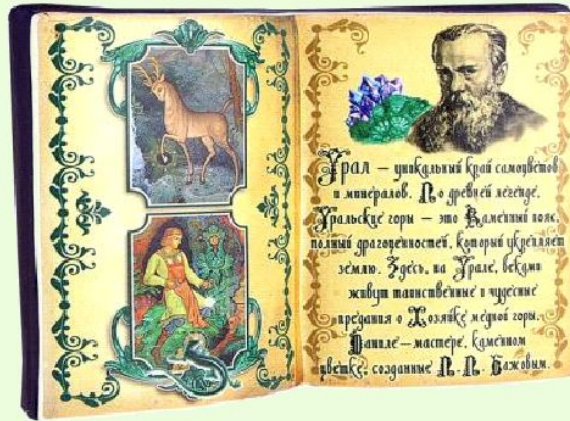 Урал — уникальный край самоцветов
и минералов. По древней легенде,
Уральские горы — это Каменный пояс,
полный драгоценностей, который укрепляет
землю. Здесь, на Урале, веками
живут таинственные и чудесные
предания о Хозяйке медной горы,
Даниле — мастере, каменном
цветке, созданные П. П. Бажовым.